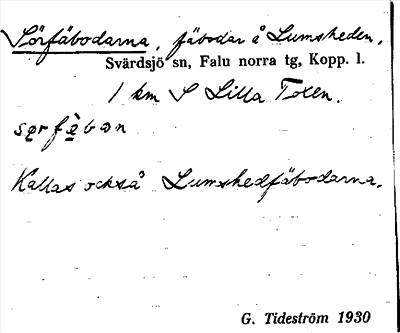 Sörfäbodarna, fäbodar å Lumsheden,
Svärdsjö sn, Falu norra tg, Kopp. l.
1 km S Lilla Toxen.
Kallas också Lumshedfäbodarna.
G. Tideström 1930